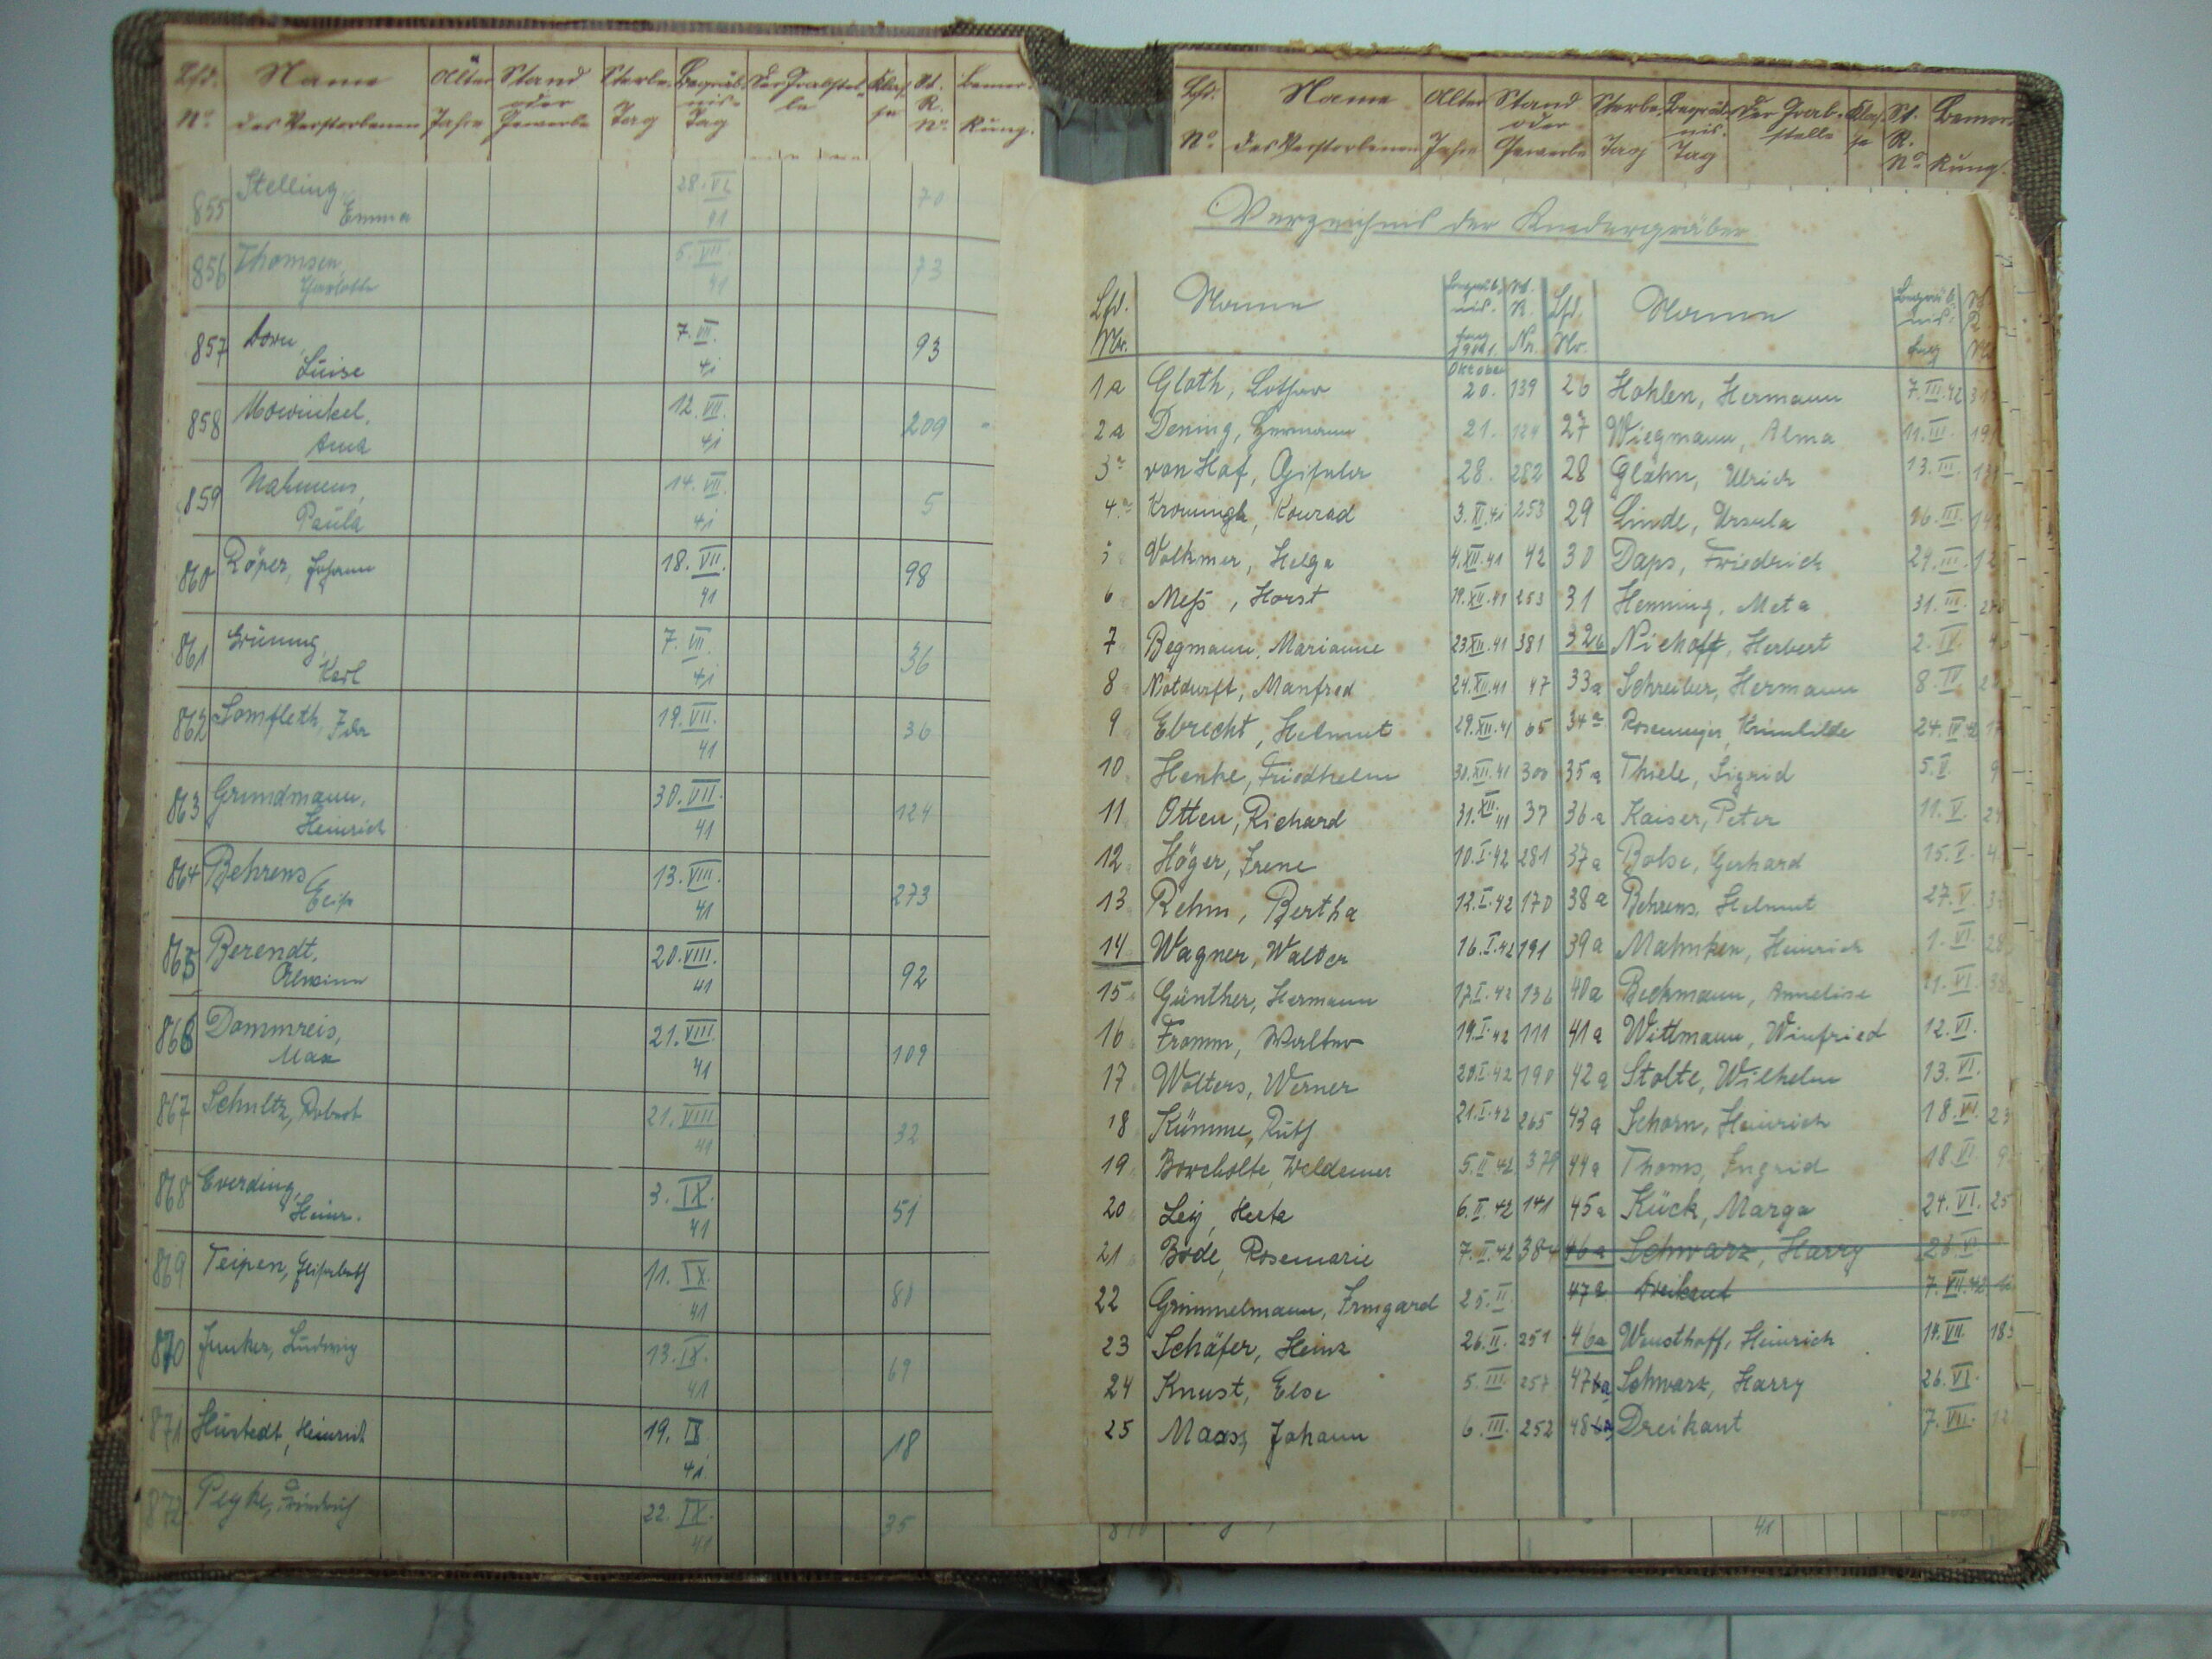 Lfd. Name Alter Stand Sterbe- Begräb- Der Grabstel- Klas- St. Bemer-
oder nis- le R.
No. des Verstorbenen Jahre Gewerbe Tag Tag se No. kung.
855 Stelling, 28. VI. 70
Emma 41
856 Thomsen, 5. VII. 73
Charlotte 41
857 Dorn, 7. VII. 93
Luise 41
858 Mowinkel, 12. VII. 209
Anna 41
859 Nahmens, 14. VII. 5
Paula 41
860 Röper, Johann 18. VII. 98
41
861 Grüning, 7. VII. 36
Karl 41
862 Lomfleth, Ida 19. VII. 36
41
863 Grundmann, 30. VII. 124
Heinrich 41
864 Behrens 13. VIII. 273
41
865 Berendt, 20. VIII. 92
Alwine 41
866 Dammreis, 21. VIII. 109
Max 41
867 Schultz, Robert 21. VIII 32
41
868 Everding, 3. IX. 51
Heinr. 41
869 Teipen, Elisabeth 11. IX. 80
41
870 Junker, Ludwig 13. IX. 69
41
871 Hustedt, Heinrich 19. IX 18
41
872 Peyke, Friedrich 22. IX. 35
41
Lfd. Name Alter Stand Sterbe- Begräb- Der Grab- Klas- St. Bemer-
oder nis- stelle R.
No. des Verstorbenen Jahre Gewerbe Tag Tag se No. kung.
Verzeichnis der Kindergräber
Lfd. Name Begräb- St. Lfd. Name Begräb- St.
nis- R. nis- R.
Nr. tag 1941. Nr. Nr. tag Nr.
Oktober
1a Gloth, Lothar 20. 139 26 Hohlen, Hermann 7. III. 42
2a Dening, Hermann 21. 124 27 Wiegmann, Alma 11. III.
3a von Hof, Gisela 28. 282 28 Glahn, Ulrich 13. III.
4a Konrad 3. XI. 41 253 29 Linde, Ursula 16. III.
5 Volkmer, Helga 4. XII. 41 42 30 Daps, Friedrich 24. III.
6 Meß, Horst 19. XII. 41 253 31 Henning, Meta 31. III.
7 Begmann, Marianne 23 XII. 41 381 32b Niehoff, Herbert 2. IV.
8 Notdurft, Manfred 24. XII. 41 47 33a Schreiber, Hermann 8. IV
9 Ebrecht, Helmut 29. XII. 41 65 34a Rosemeyer, Krimhilde 24. IV. 42
10 Henke, Friedhelm 30. XII. 41 300 35a Thiele, Sigrid 5. V.
11 Otten, Richard 31. XII. 41 37 36a Kaiser, Peter 11. V.
12 Höger, Irene 10. I. 42 281 37a Bolse, Gerhard 15. V.
13 Rehm, Bertha 12. I. 42 170 38a Behrens, Helmut 27. V.
14 Wagner, Walter 16. I. 42 191 39a Mahnken, Heinrich 1. VI
15 Günther, Hermann 17. I. 42 136 40a Beckmann, Annelise 11. VI.
16 Fromm, Walter 19. I. 42 111 41a Wittmann, Winfried 12. VI.
17 Wolters, Werner 20. I. 42 190 42a Stolte, Wilhelm 13. VI.
18 Kümme, Ruth 21. I. 42 265 43a Schorn, Heinrich 18. VI. 23
19 Borcholte, Waldemar 5. II. 42 379 44a Thoms, Ingrid 18. VI.
20 Ley, Herta 6. II. 42 141 45a Kück, Marga 24. VI. 25
21 Bode, Rosemarie 7. II. 42 384 46a Schwarz, Harry 26. VI.
22 Grimmelmann, Irmgard 25. II. 47a Dreikant 7. VII. 42
23 Schäfer, Heinz 26. II. 251 46a Wusthoff, Heinrich 14. VII.
24 Knust, Else 5. III. 257 47a Schwarz, Harry 26. VI.
25 Maass, Johann 6. III. 252 48 Dreikant 7. VII.
41